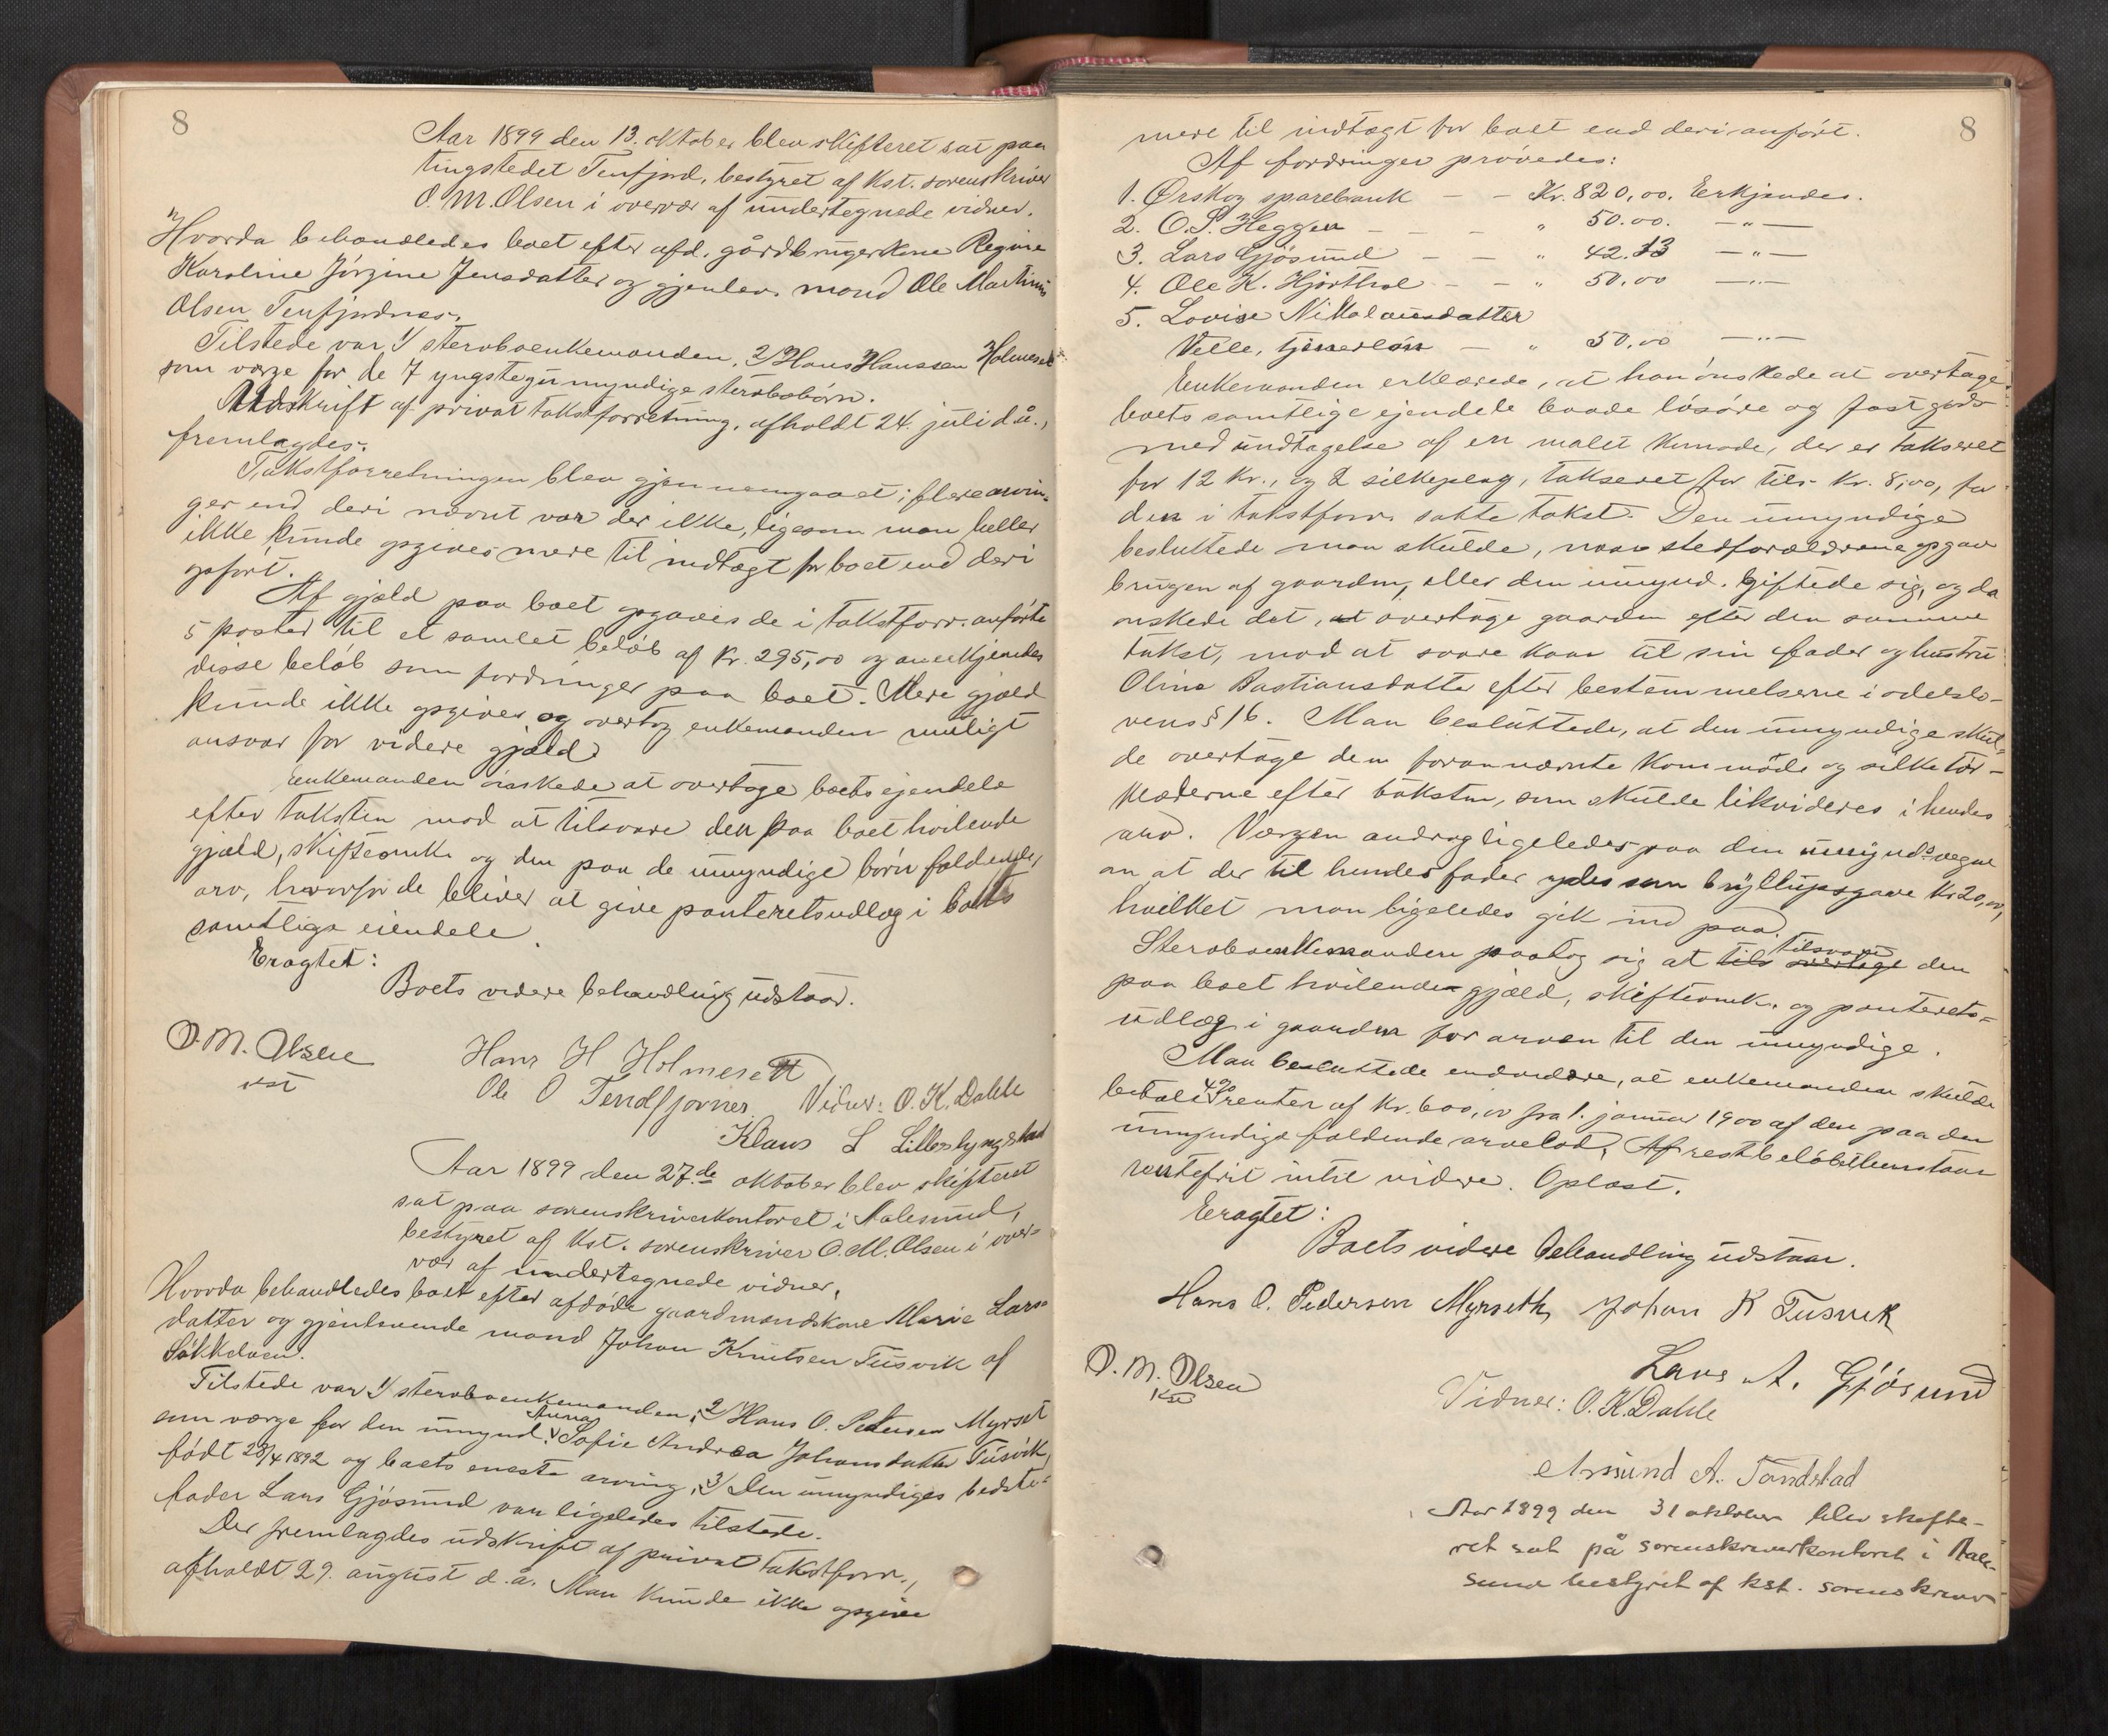 8
Aar 1899 den 13. oktober blev skifteret sat paa
tingstedet Tenfjord, bestyret af kst. sorenskriver
O. M. Olsen i overvær af undertegnede vidner.
Hvorda behandledes boet efter afd. gårdbrugerkone Regine
Karoline Jørgine Jensdatter og gjenlev. mand Ole Martinus
Olsen Tenfjordnes.
Tilstede var 1/ stervboenkemanden, 2/ Hans Hanssen Holmeset
som værge for de 7 yngste umyndige stervbobørn.
Udskrift af privat takstforretning, afholdt 24. juli d. å.,
fremlagdes.
Takstforretningen blev gjennemgaaet; flere arvin-
ger end deri nævnt var der ikke, ligesom man heller
ikke kunde opgives mere til indtægt for boet end deri
opført.
Af gjæld paa boet opgaves de i takstforr. anførte
5 poster til et samlet beløb af kr. 295,00 og anerkjendes
disse beløb som fordringer paa boet. Mere gjæld
kunde ikke opgives og overtog enkemanden muligt
ansvar for videre gjæld.
Enkemanden ønskede at overtage boets ejendele
efter taksten mod at tilsvare den paa boet hvilende
gjæld, skifteomk. og den paa de umyndige børn faldende
arv, hvorfor de bliver at give panteretsudlæg i boets
samtlige eiendele.
Eragtet:
Boets videre behandling udstaar.
O. M. Olsen
kst
Hans H Holmeset
Ole O Tendfjornes Vidner: O. K. Dahle
Klaus L Lillerslyngstad
Aar 1899 den 27.de oktober blev skifteret
sat paa sorenskriverkontoret i Aalesund,
bestyret af kst. sorenskriver O. M. Olsen i over-
vær af undertegnede vidner.
Hvorda behandledes boet efter afdøde gaardmandskone Marie Lars-
datter og gjenlevende mand Johan Knutsen Tusvik af
Søkkdaen.
Tilstede var 1/ stervboenkemanden, 2/ Hans O. Pedersen Myrset
som værge for den umynd. Anna Sofie Andrea Johansdatter Tusvik,
født 28/4 1892 og boets eneste arving, 3/ Den umyndiges bedste-
fader Lars Gjøsund var ligeledes tilstede.
Der fremlagdes udskrift af privat takstforr.,
afholdt 29. august d. a. Man kunde ikke opgive
8
mere til indtægt for boet end deri anført.
Af fordringer prøvedes:
1. Ørskog sparebank — — Kr. 820,00. Erkjendes.
2. O. P. Heggen — — — " 50.00. — " —
3. Lars Gjøsund — — " 42.13 — " —
4. Ole K. Hjorthol — — " 50.00 — " —
5. Lovise Nikolausdatter
Velle, tjenerløn — " 50,00 — " —
Enkemanden erklærede, at han ønskede at overtage
boets samtlige ejendele baade løsøre og fast gods
med undtagelse af en malet komode, der er takseret
for 12 kr., og 2 silkeplag, takseret for tils. kr. 8,00, for
den i takstforr. satte takst. Den umyndige
besluttede man skulde, naar stedforældrene opgav
brugen af gaarden, eller den umynd. giftede sig, og da
ønskede det, at overtage gaarden efter den samme
takst, mod at svare kaar til sin fader og hustru
Oline Bastiansdatter efter bestemmelserne i odelslo-
vens § 16. Man besluttede, at den umyndige skul-
de overtage den forannævnte kommode og silketør-
klæderne efter taksten, som skulde likvideres i hendes
arv. Værgen androg ligeledes paa den umynd.s vegne
om at der til hendes fader ydes som bryllupsgave kr 20,00,
hvilket man ligeledes gik ind paa.
Stervboenkemanden paatog sig at tils overtage tilsvare den
paa boet hvilende gjæld, skifteomk. og panterets-
udlæg i gaarden for arven til den umyndige.
Man besluttede endvidere, at enkemanden skulde
betale 4% renter af kr. 600,00 fra 1. januar 1900 af den paa den
umyndige faldende arvelod. Af restbeløbet henstaar
rentefrit indtil videre. Oplæst.
Eragtet:
Boets videre behandling udstaar.
Hans O. Pedersen Myrseth Johan K Tusvik
Lars A. Gjøsund
O. M. Olsen
kst
Vidner: O. K. Dahle
Amund A. Tandstad
Aar 1899 den 31 oktober blev skifte-
ret sat på sorenskriverkontoret i Aale-
sund bestyret af kst. sorenskriver